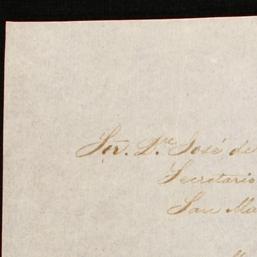 Sor. Dn. José de
Secretario
San Ma